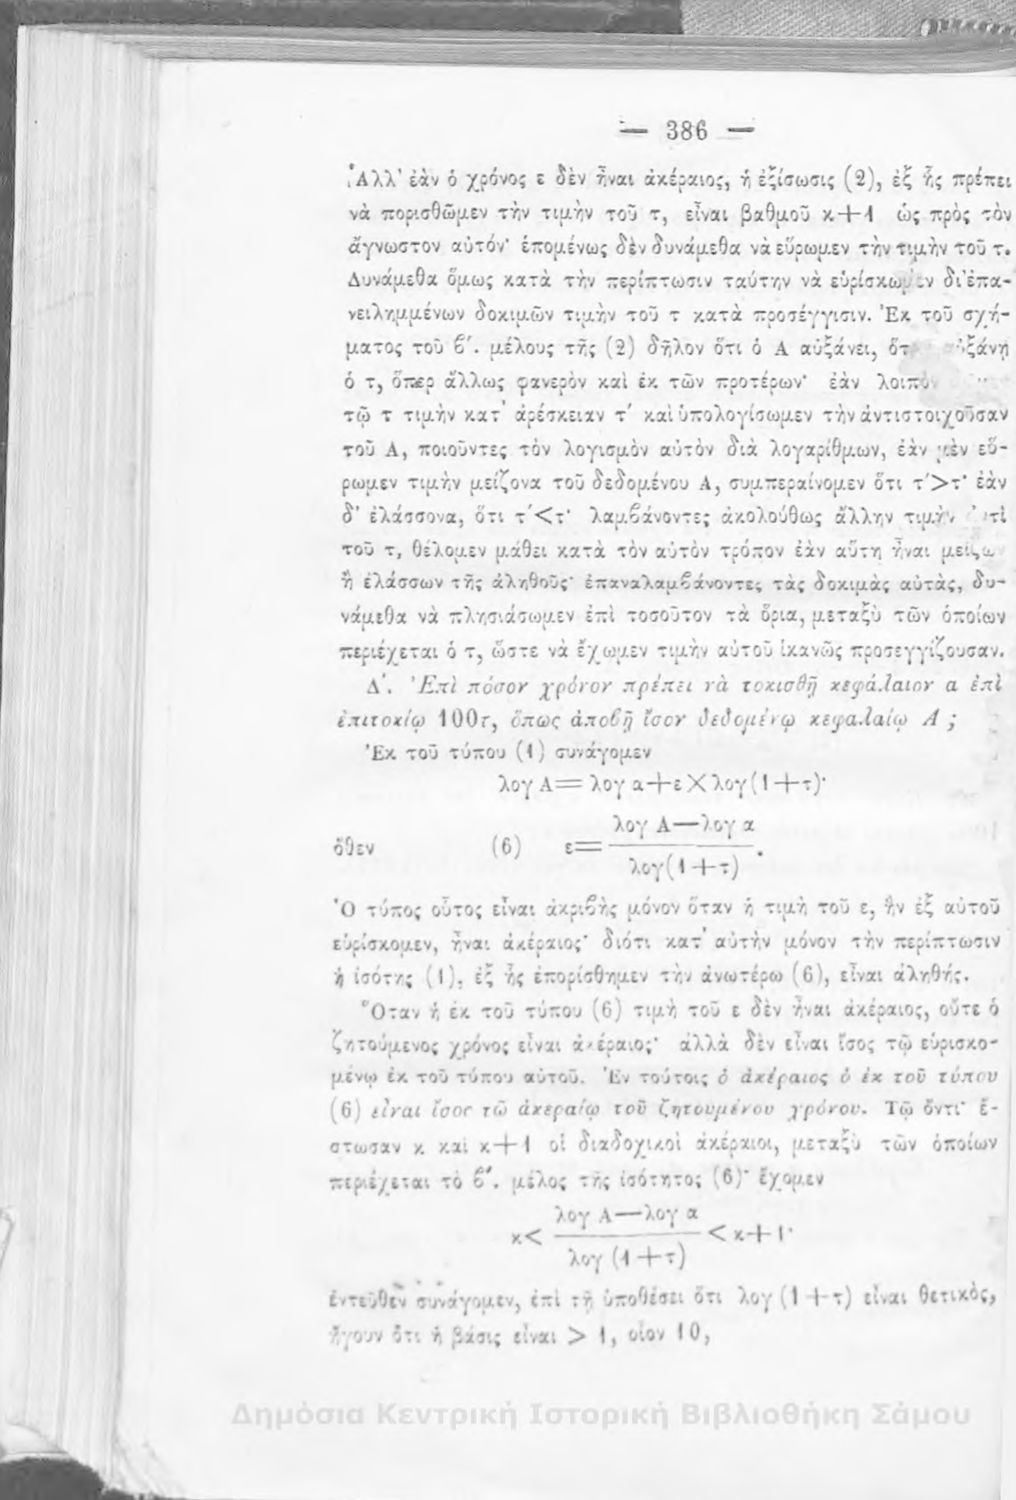 — 386 —
Ἀλλ' ἐὰν ὁ χρόνος ε δὲν ἦναι ἀκέραιος, ἡ ἐξίσωσις (2), ἐξ ἧς πρέπει
νὰ πορισθῶμεν τὴν τιμὴν τοῦ τ, εἶναι βαθμοῦ κ+1 ὡς πρὸς τὸν
ἄγνωστον αὐτόν· ἑπομένως δὲν δυνάμεθα νὰ εὕρωμεν τὴν τιμὴν τοῦ τ.
Δυνάμεθα ὅμως κατὰ τὴν περίπτωσιν ταύτην νὰ εὑρίσκωμεν δι' ἐπα-
νειλημμένων δοκιμῶν τιμὴν τοῦ τ κατὰ προσέγγισιν. Ἐκ τοῦ σχή-
ματος τοῦ β'. μέλους τῆς (2) δῆλον ὅτι ὁ Α αὐξάνει, αὐξάνῃ
ὁ τ, ὅπερ ἄλλως φανερὸν καὶ ἐκ τῶν προτέρων· ἐὰν λοιπὸν
τῷ τ τιμὴν κατ' ἀρέσκειαν τ' καὶ ὑπολογίσωμεν τὴν ἀντιστοιχοῦσαν
τοῦ Α, ποιοῦντες τὸν λογισμὸν αὐτὸν διὰ λογαρίθμων, ἐὰν μὲν εὕ-
ρωμεν τιμὴν μείζονα τοῦ δεδομένου Α, συμπεραίνομεν ὅτι τ'>τ· ἐὰν
δ' ἐλάσσονα, ὅτι τ'<τ· λαμβάνοντες ἀκολούθως ἄλλην τιμὴν
τοῦ τ, θέλομεν μάθει κατὰ τὸν αὐτὸν τρόπον ἐὰν αὕτη ἦναι μείζων
ἢ ἐλάσσων τῆς ἀληθοῦς· ἐπαναλαμβάνοντες τὰς δοκιμὰς αὐτὰς, δυ-
νάμεθα νὰ πλησιάσωμεν ἐπὶ τοσοῦτον τὰ ὅρια, μεταξὺ τῶν ὁποίων
περιέχεται ὁ τ, ὥστε νὰ ἔχωμεν τιμὴν αὐτοῦ ἱκανῶς προσεγγίζουσαν.
Δ'. Ἐπὶ πόσον χρόνον πρέπει νὰ τοκισθῇ κεφάλαιον α ἐπὶ
ἐπιτοκίῳ 100τ, ὅπως ἀποβῇ ἴσον δεδομένῳ κεφαλαίῳ Α ;
Ἐκ τοῦ τύπου (1) συνάγομεν
λογ Α= λογ α+ε×λογ(1+τ)·
λογ Α—λογ α
ὅθεν (6) ε= ———.
λογ(1+τ)
Ὁ τύπος οὗτος εἶναι ἀκριβὴς μόνον ὅταν ἡ τιμὴ τοῦ ε, ἣν ἐξ αὐτοῦ
εὑρίσκομεν, ἦναι ἀκέραιος· διότι κατ' αὐτὴν μόνον τὴν περίπτωσιν
ἡ ἰσότης (1), ἐξ ἧς ἐπορίσθημεν τὴν ἀνωτέρω (6), εἶναι ἀληθής.
Ὅταν ἡ ἐκ τοῦ τύπου (6) τιμὴ τοῦ ε δὲν ἦναι ἀκέραιος, οὔτε ὁ
ζητούμενος χρόνος εἶναι ἀκέραιος· ἀλλὰ δὲν εἶναι ἴσος τῷ εὑρισκο-
μένῳ ἐκ τοῦ τύπου αὐτοῦ. Ἐν τούτοις ὁ ἀκέραιος ὁ ἐκ τοῦ τύπου
(6) εἶναι ἴσος τῷ ἀκεραίῳ τοῦ ζητουμένου χρόνου. Τῷ ὄντι· ἔ-
στωσαν κ καὶ κ+1 οἱ διαδοχικοὶ ἀκέραιοι, μεταξὺ τῶν ὁποίων
περιέχεται τὸ β'. μέλος τῆς ἰσότητος (6)· ἔχομεν
λογ Α—λογ α
κ< ——— < κ+1·
λογ (1+τ)
ἐντεῦθεν συνάγομεν, ἐπὶ τῇ ὑποθέσει ὅτι λογ (1+τ) εἶναι θετικὸς,
ἤγουν ὅτι ἡ βάσις εἶναι > 1, οἷον 10,
Δημόσια Κεντρική Ιστορική Βιβλιοθήκη Σάμου